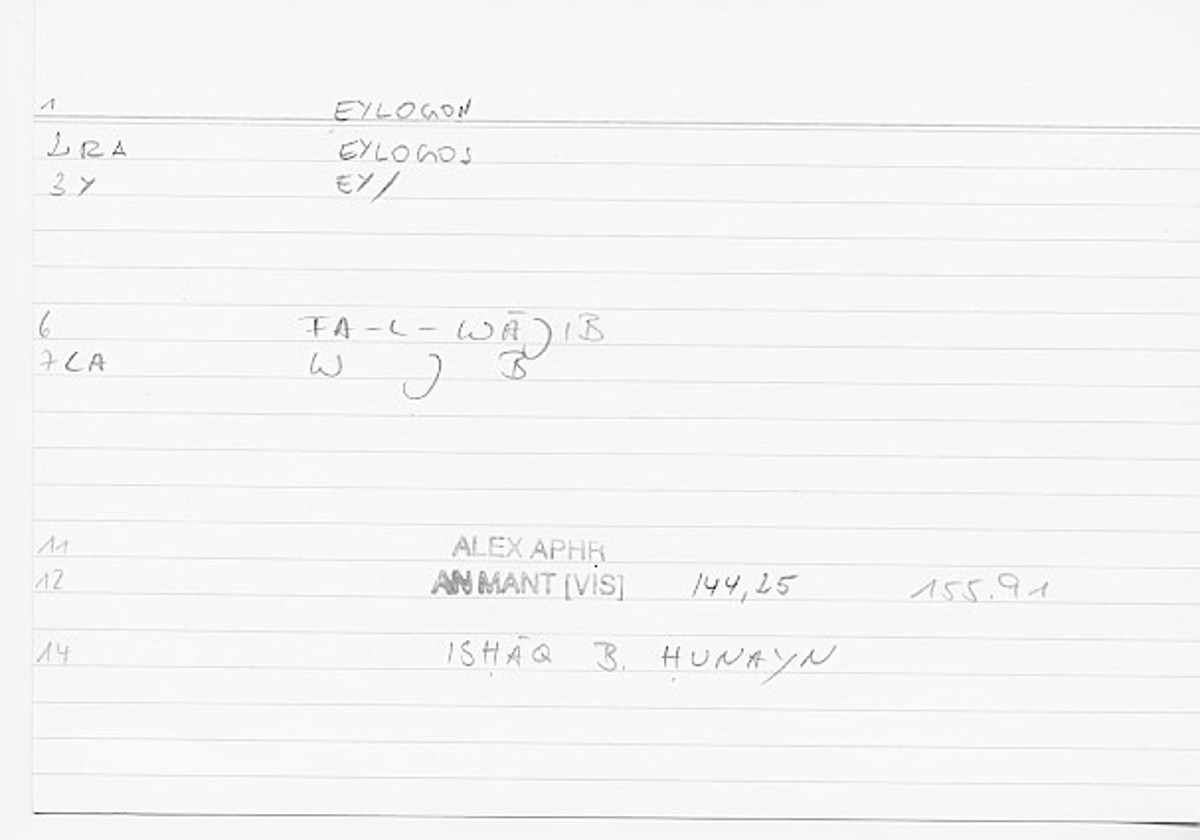 1 EYLOGON
2 RA EYLOGOS
3 Y EY/
6 FA-L-WĀJIB
7 LA W J B
11 ALEX APHR
12 AN MANT [VIS] 144,25 155.91
14 ISḤĀQ B. ḤUNAYN